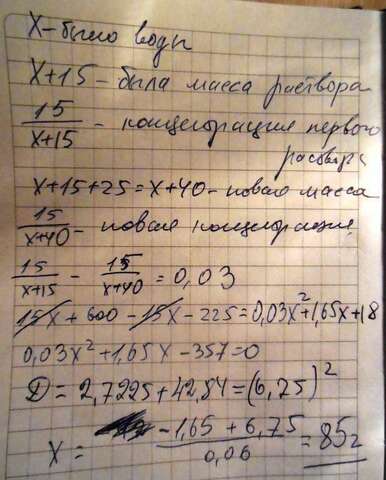 x - было воды
x+15 - была масса раствора
15/(x+15) - концентрация первого
раствора
x+15+25=x+40 - новая масса
15/(x+40) - новая концентрация.
15/(x+15) - 15/(x+40) = 0,03
15x + 600 - 15x - 225 = 0,03x²+1,65x+18
0,03x²+1,65x-357=0
D = 2,7225+42,84=(6,75)²
x = (-1,65 + 6,75)/0,06 = 85г